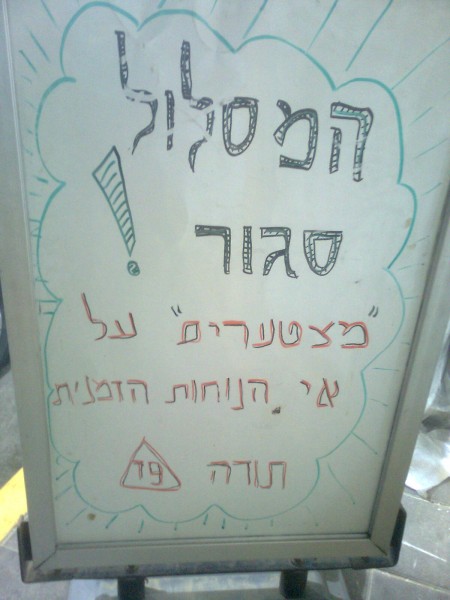 המסלול
סגור!
"מצטערים" על
אי הנוחות הזמנית
תודה